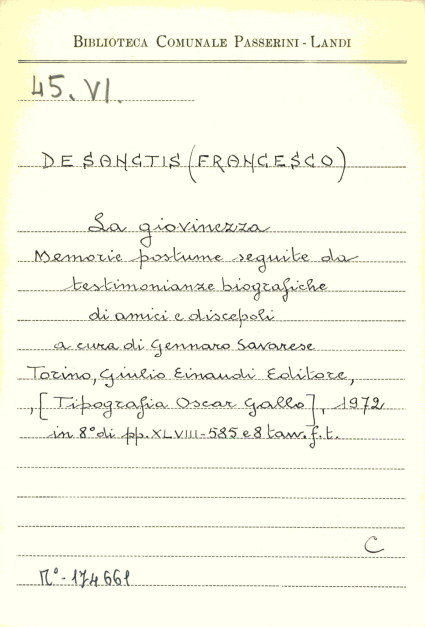 BIBLIOTECA COMUNALE PASSERINI - LANDI
45. VI.
DE SANCTIS (FRANCESCO)
La giovinezza
Memorie postume seguite da
testimonianze biografiche
di amici e discepoli
a cura di Gennaro Savarese
Torino, Giulio Einaudi Editore,
, [Tipografia Oscar Gallo], 1972
in 8° di pp. XLVIII-585 e 8 tavv. f. t.
C
N° - 174661